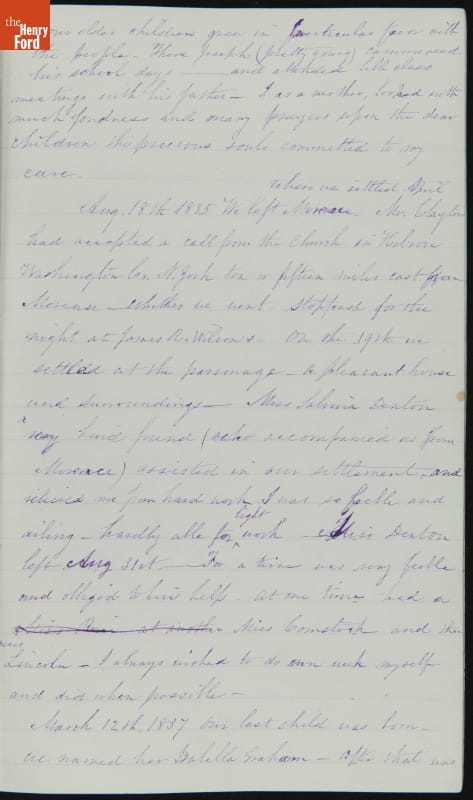 The
Henry
Ford
our older children grew in particular favor with
the people. There Joseph (pretty young) commenced
his school days — and attended bible class
meetings with his father — I as a mother, looked with
much fondness and many prayers upon the dear
children the precious souls committed to my
care.
when we settled April
Aug. 18th 1835 We left Moreau. Mr. Clayton
had accepted a call from the Church in Hebron
Washington Co. N. York ten or fifteen miles east from
Moreau — whither we went. stopped for the
night at James R. Wilson's. On the 19th we
settled at the parsonage — a pleasant house
and surroundings — Miss Denton
a very kind friend (who accompanied us from
Moreau) assisted in our settlement, and
relieved me from hard work I was so feeble and
ailing — hardly able for light work. Miss Denton
left Aug 31st — For a time was very feeble
and obliged to hire help. at one time had a
Miss at another Miss Comstock and then
Miss Lincoln — I always wished to do own work myself
and did when possible —
March 12th, 1837 Our last child was born —
we named her Isabella Graham — After that was